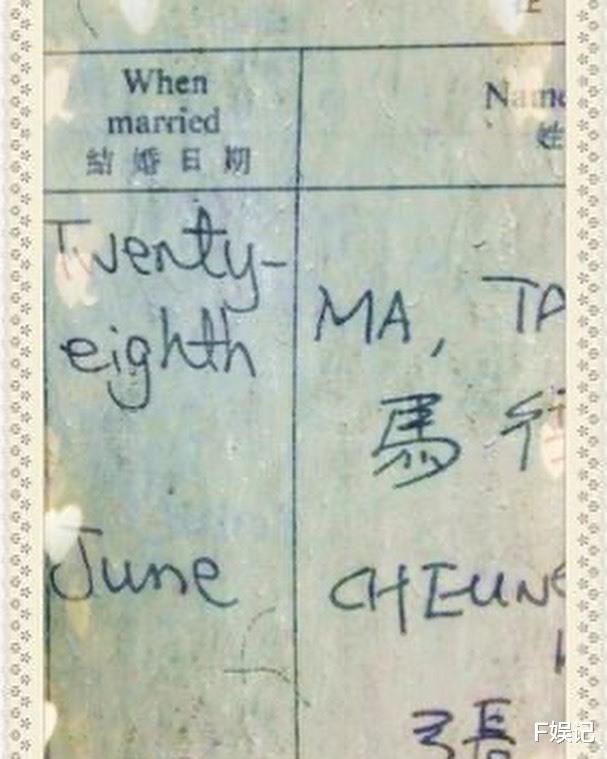 When
married
結婚日期
Name
姓
Twenty-
eighth
June
MA, TA
馬
CHEUN
張
F娱记